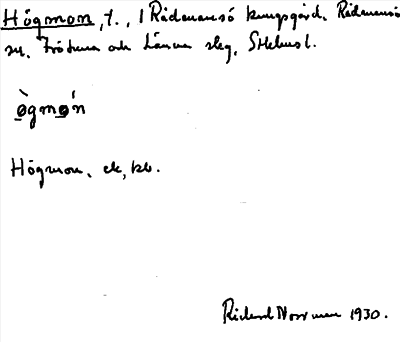 Högmon, t., 1 Rådmansö kungsgård, Rådmansö
sn, Frötuna och Länna slg, Sthlms l.
ògmón
Högmon, ek, kb.
Rickard Norrman 1930.